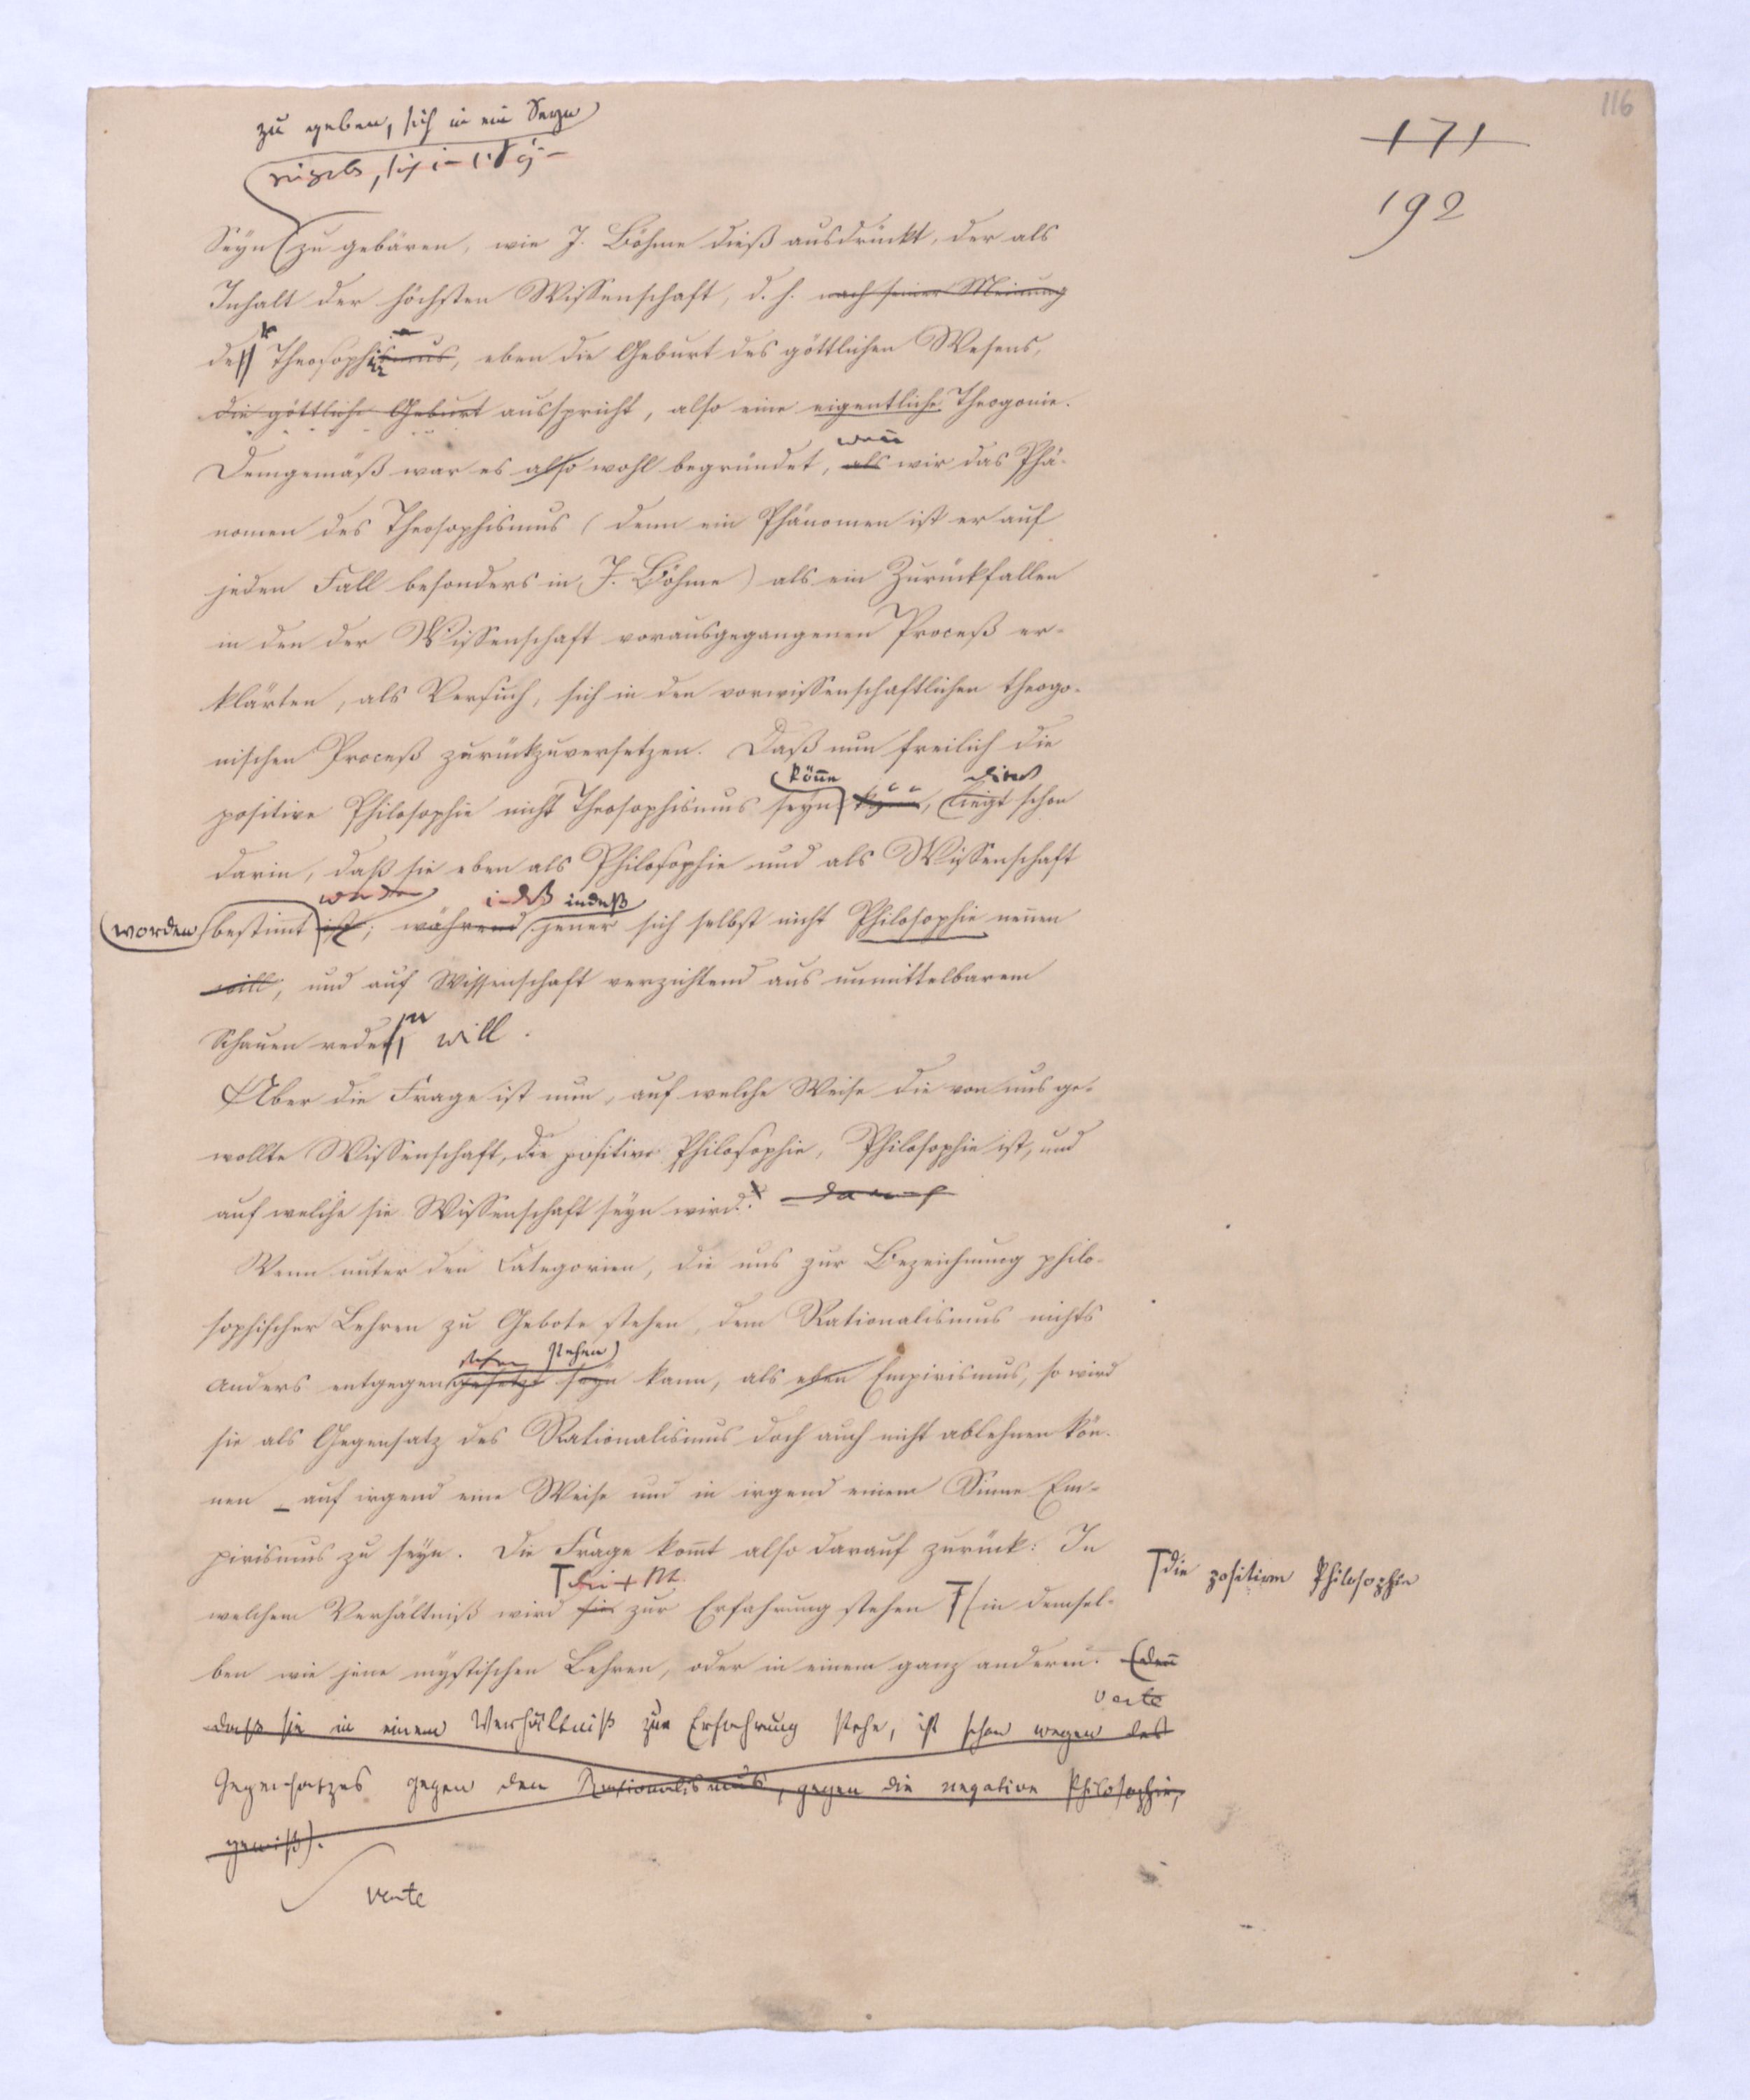 116
171
192
zu geben, sich in ein Seyn
Seyn zu gebären, wie J. Böhme dieß ausdrückt, der als
Inhalt der höchsten Wissenschaft, d. h. nach seiner Meinung
des Theosophismus, eben die Geburt des göttlichen Wesens,
die göttliche Geburt ausspricht, also eine eigentliche Theogonie.
wenn
Demgemäß war es also wohl begründet, als wir das Phä-
nomen des Theosophismus (denn ein Phänomen ist er auf
jeden Fall besonders in J. Böhme) als ein Zurückfallen
in den der Wissenschaft vorausgegangenen Proceß er-
klärten, als Versuch, sich in den vorwissenschaftlichen theogo-
nischen Proceß zurückzuversetzen. Daß nun freilich die
könne
positive Philosophie nicht Theosophismus seyn, liegt schon
darin, daß sie eben als Philosophie und als Wissenschaft
worden indeß indeß
worden bestimt ist; während jener sich selbst nicht Philosophie nennen
will, und auf Wissenschaft verzichtend aus unmittelbarem
Schauen reden will.
Aber die Frage ist nun, auf welche Weise die von uns ge-
wollte Wissenschaft, die positive Philosophie, Philosophie ist, und
auf welche sie Wissenschaft seyn wird.
Wenn unter den Categorien, die uns zur Bezeichnung philo-
sophischer Lehren zu Gebote stehen, dem Rationalismus nichts
stehen stehen
anders entgegengesetzt seyn kann, als eben Empirismus, so wird
sie als Gegensatz des Rationalismus doch auch nicht ablehnen kön-
nen – auf irgend eine Weise und in irgend einem Sinne Em-
pirismus zu seyn. Die Frage komt also darauf zurück: In
die positive Philosophie
welchem Verhältniß wird sie zur Erfahrung stehen (in demsel-
ben wie jene mystischen Lehren, oder in einem ganz anderen. (denn
verte
daß sie in einem Verhältniß zur Erfahrung stehe, ist schon wegen des
Gegensatzes gegen den Rationalismus, gegen die negative Philosophie,
gewiß).
verte